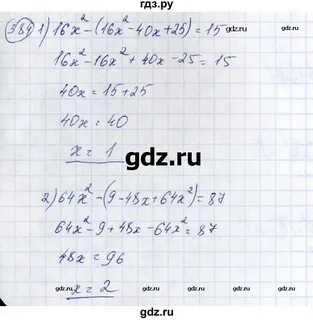 гдз.ру
384 1) 16x² - (16x² - 40x + 25) = 15
16x² - 16x² + 40x - 25 = 15
40x = 15 + 25
40x = 40
x = 1
gdz.ru
2) 64x² - (9 - 48x + 64x²) = 87
64x² - 9 + 48x - 64x² = 87
48x = 96
x = 2
gdz.ru